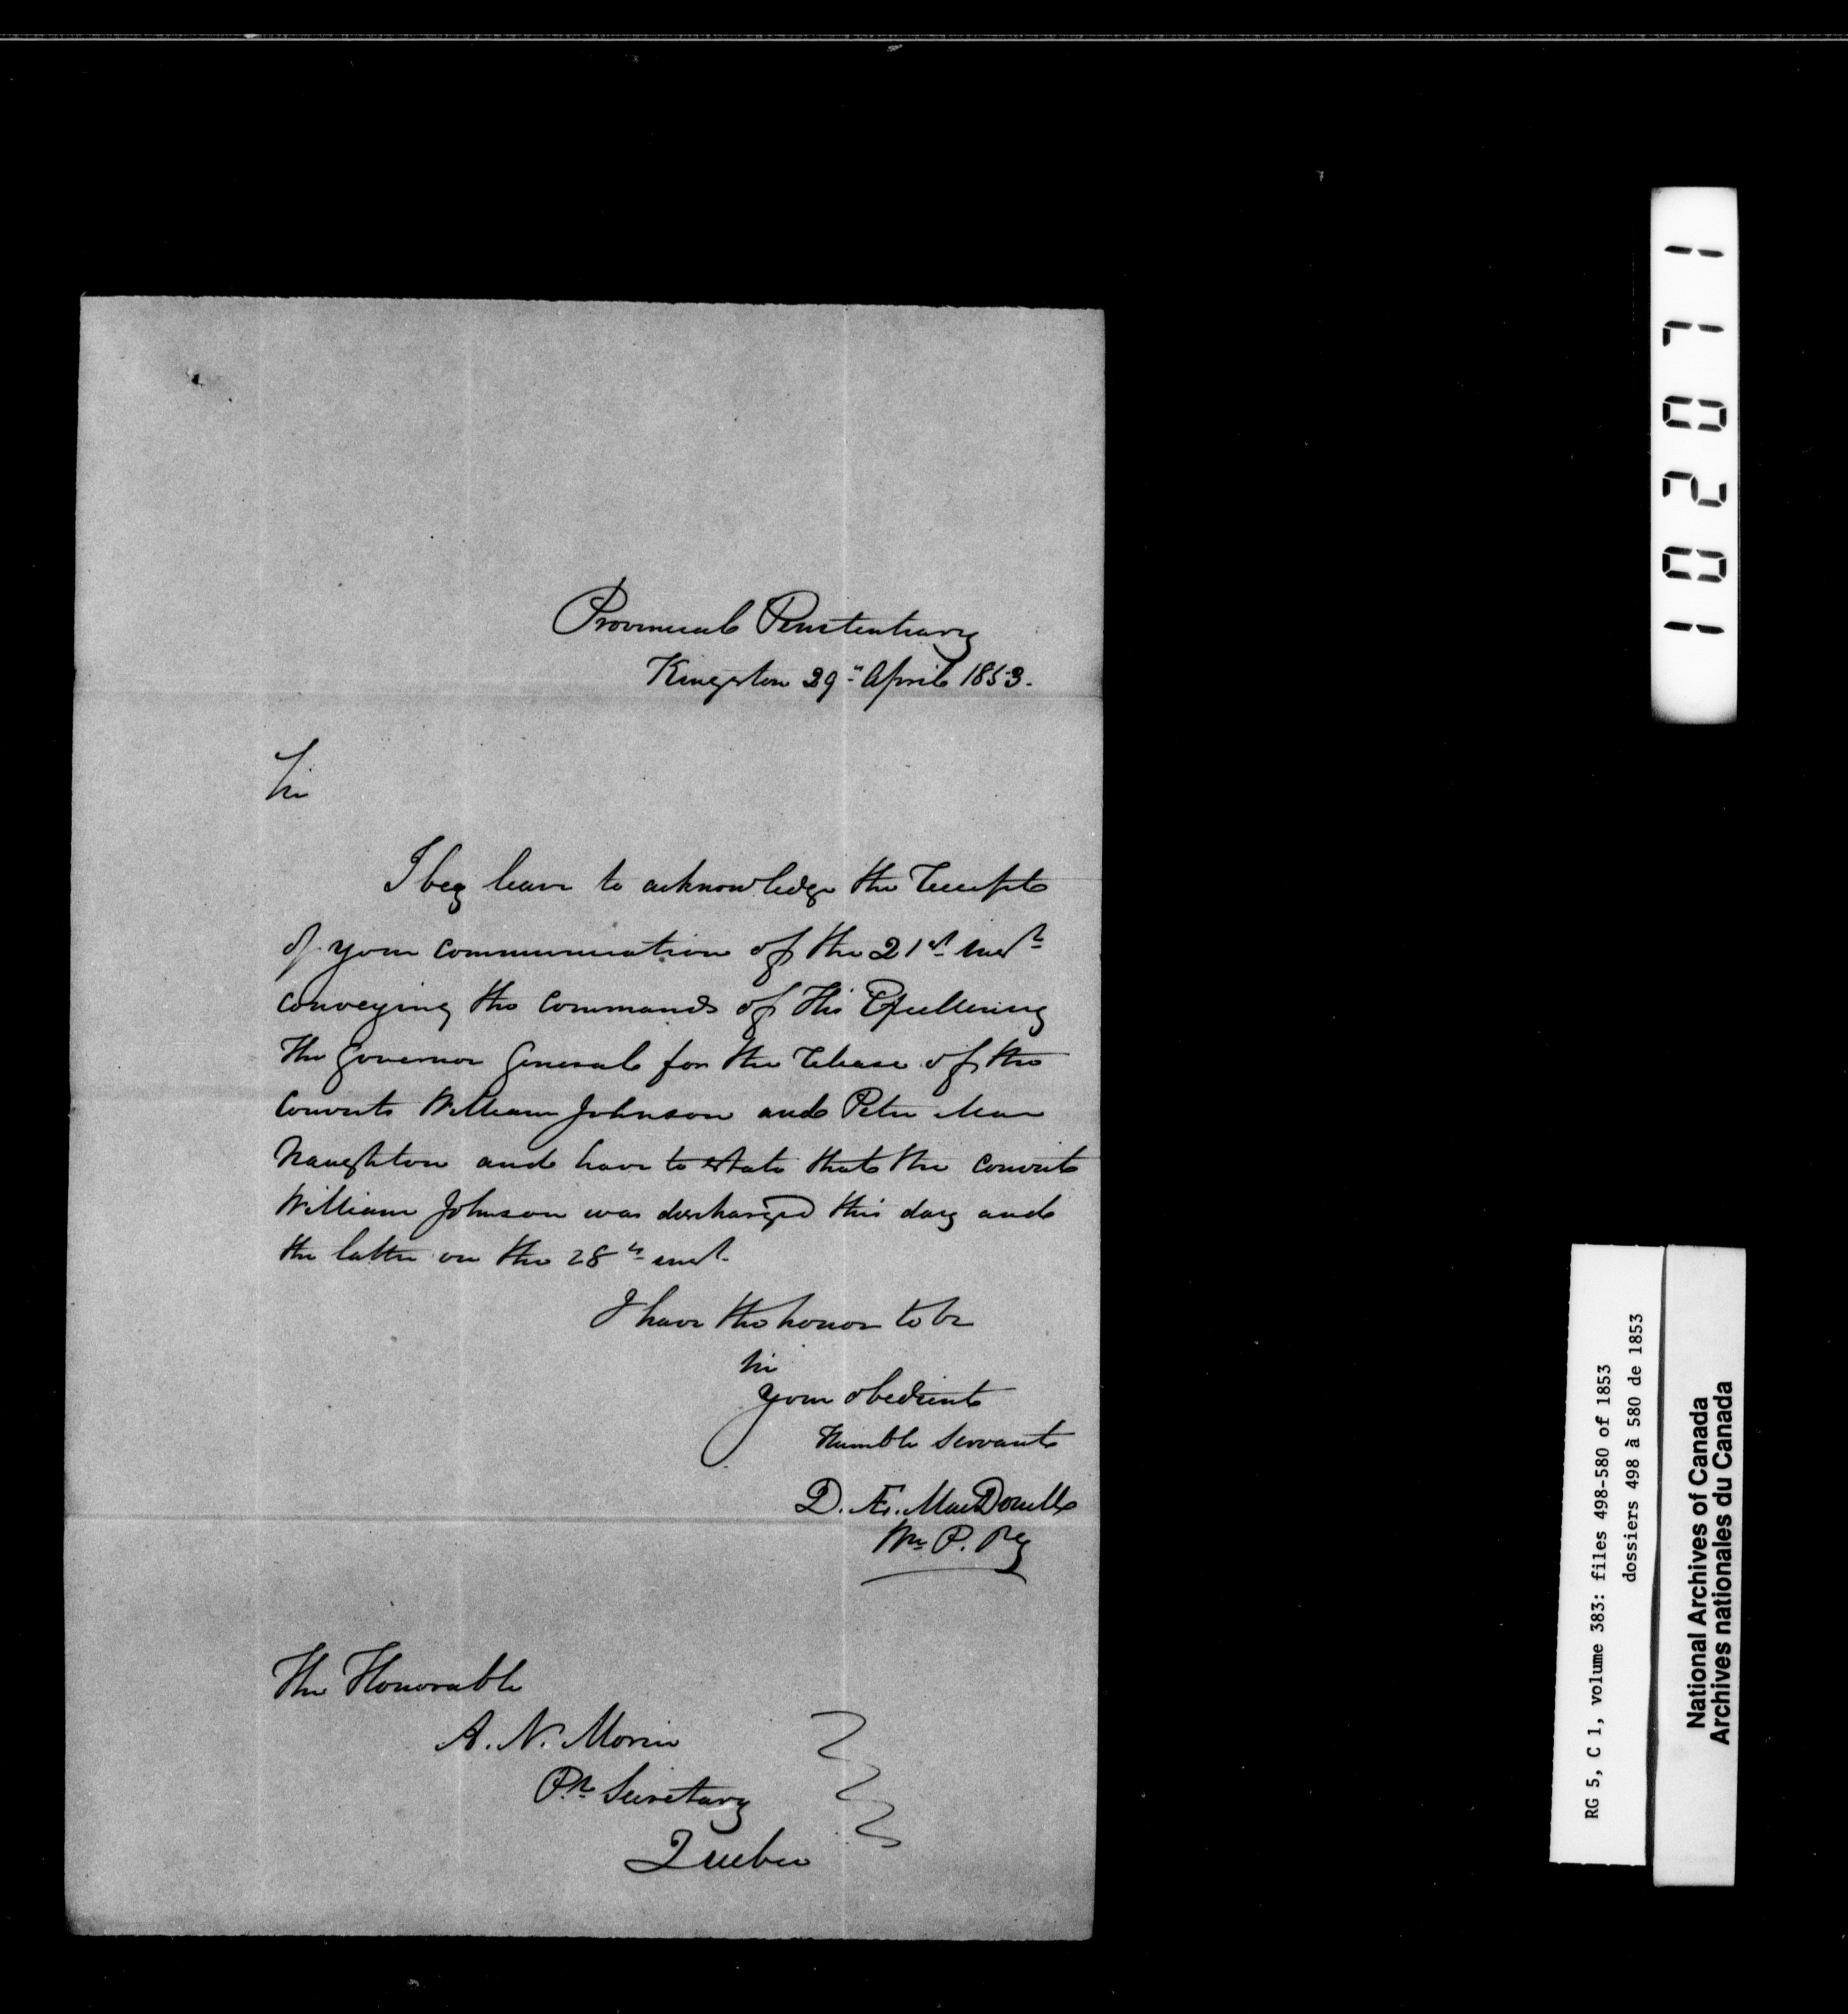 Provincial Penitentiary
Kingston 29th April 1853.
Sir
I beg leave to acknowledge the receipt
of your communication of the 21st inst
conveying the commands of His Excellency
the Governor General for the release of the
convicts William Johnson and Peter Mac
Naughton and have to state that the convict
William Johnson was discharged this day and
the latter on the 28th inst.
I have the honor to be
Sir
your obedient
Humble Servant
D. Æ. MacDonell
Wn P. Py
The Honorable
A. N. Morin
Pl Secretary
Quebec
102071
RG 5, C 1, volume 383: files 498-580 of 1853
dossiers 498 à 580 de 1853
National Archives of Canada
Archives nationales du Canada